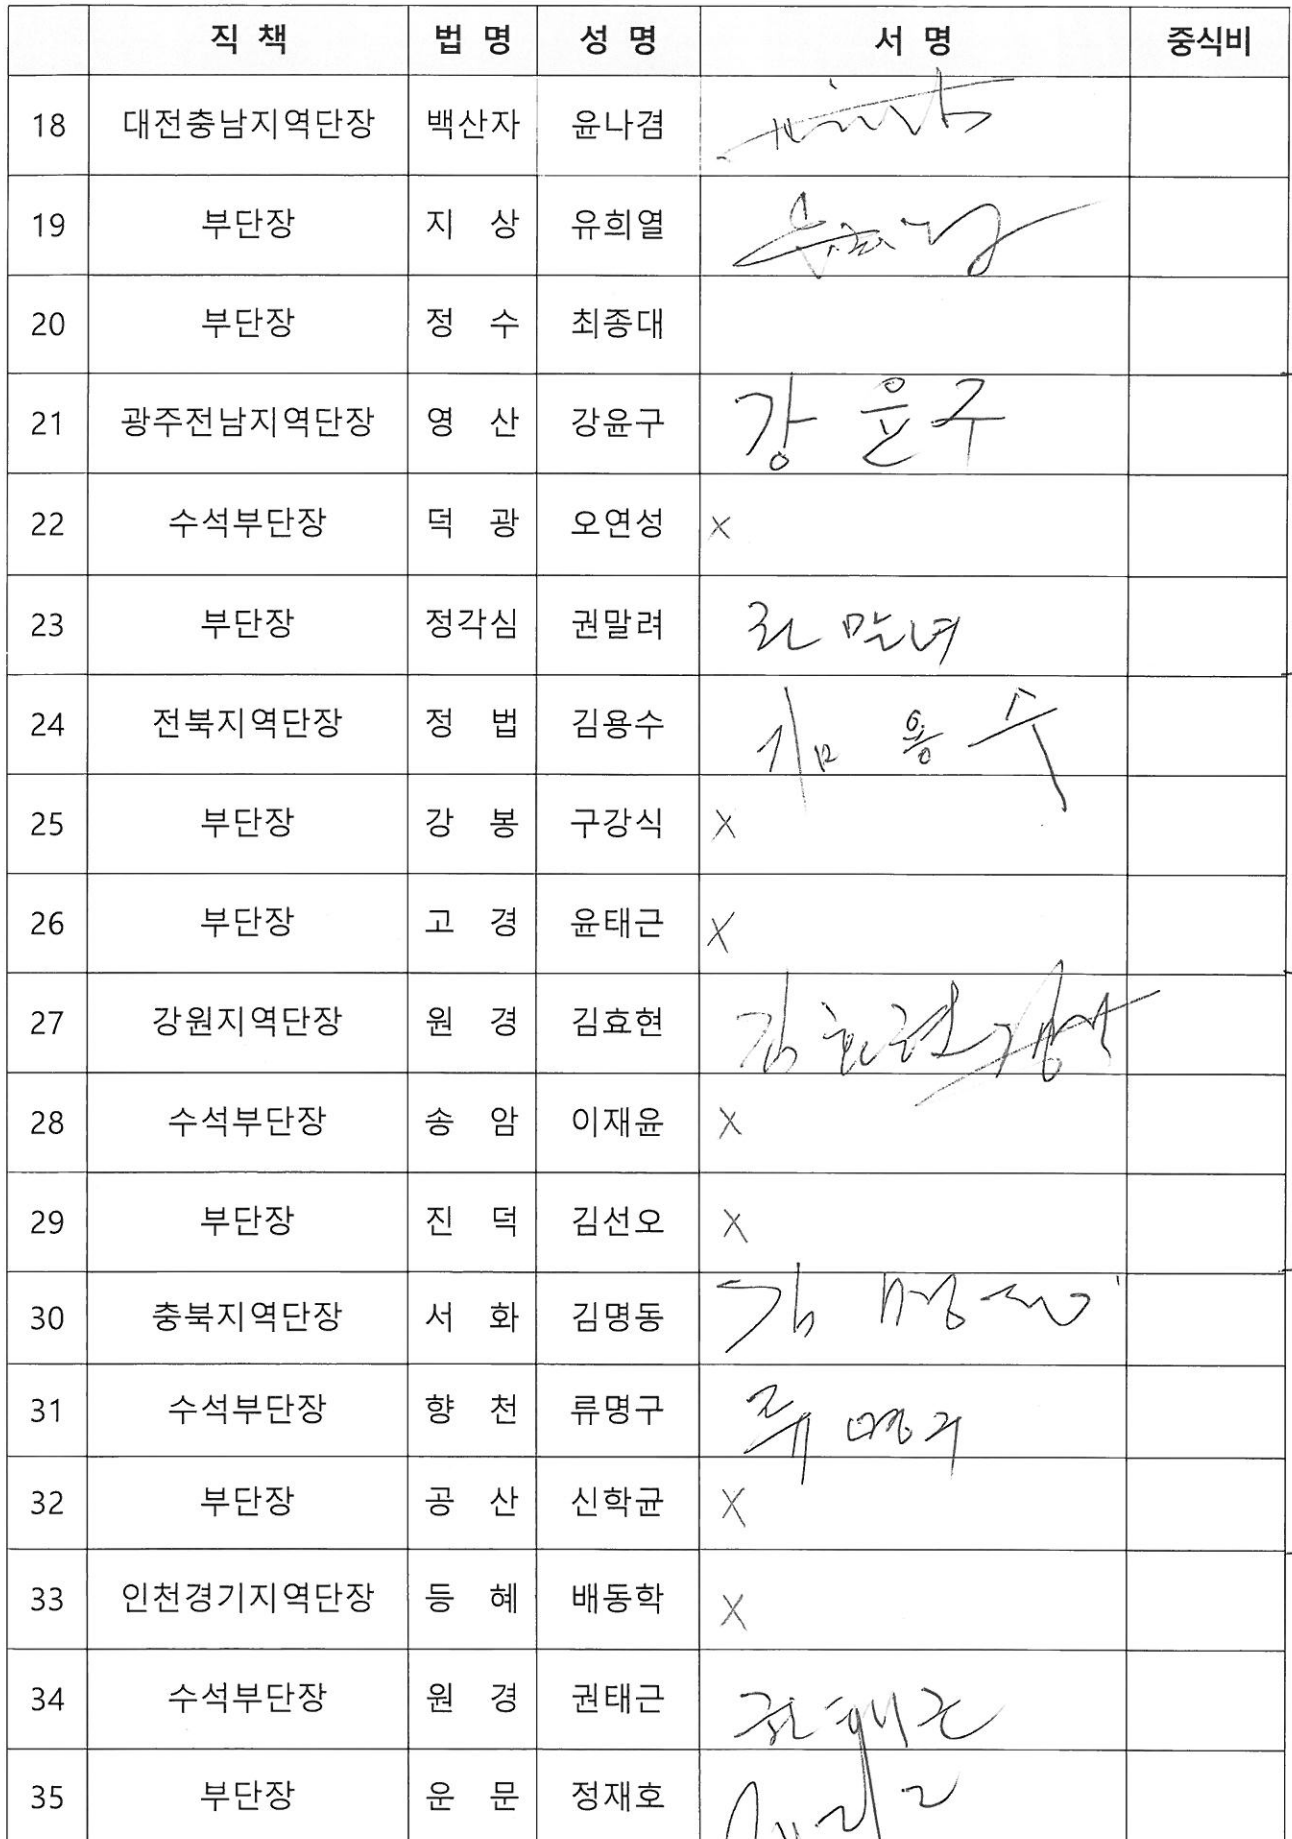 직 책 법 명 성 명 서 명 중식비
18 대전충남지역단장 백산자 윤나겸
19 부단장 지 상 유희열
20 부단장 정 수 최종대
21 광주전남지역단장 영 산 강윤구 강 윤구
22 수석부단장 덕 광 오연성 X
23 부단장 정각심 권말려 권 말녀
24 전북지역단장 정 법 김용수 김 용 수
25 부단장 강 봉 구강식 X
26 부단장 고 경 윤태근 X
27 강원지역단장 원 경 김효현 김효현
28 수석부단장 송 암 이재윤 X
29 부단장 진 덕 김선오 X
30 충북지역단장 서 화 김명동
31 수석부단장 향 천 류명구 류 명구
32 부단장 공 산 신학균 X
33 인천경기지역단장 등 혜 배동학 X
34 수석부단장 원 경 권태근 권태근
35 부단장 운 문 정재호